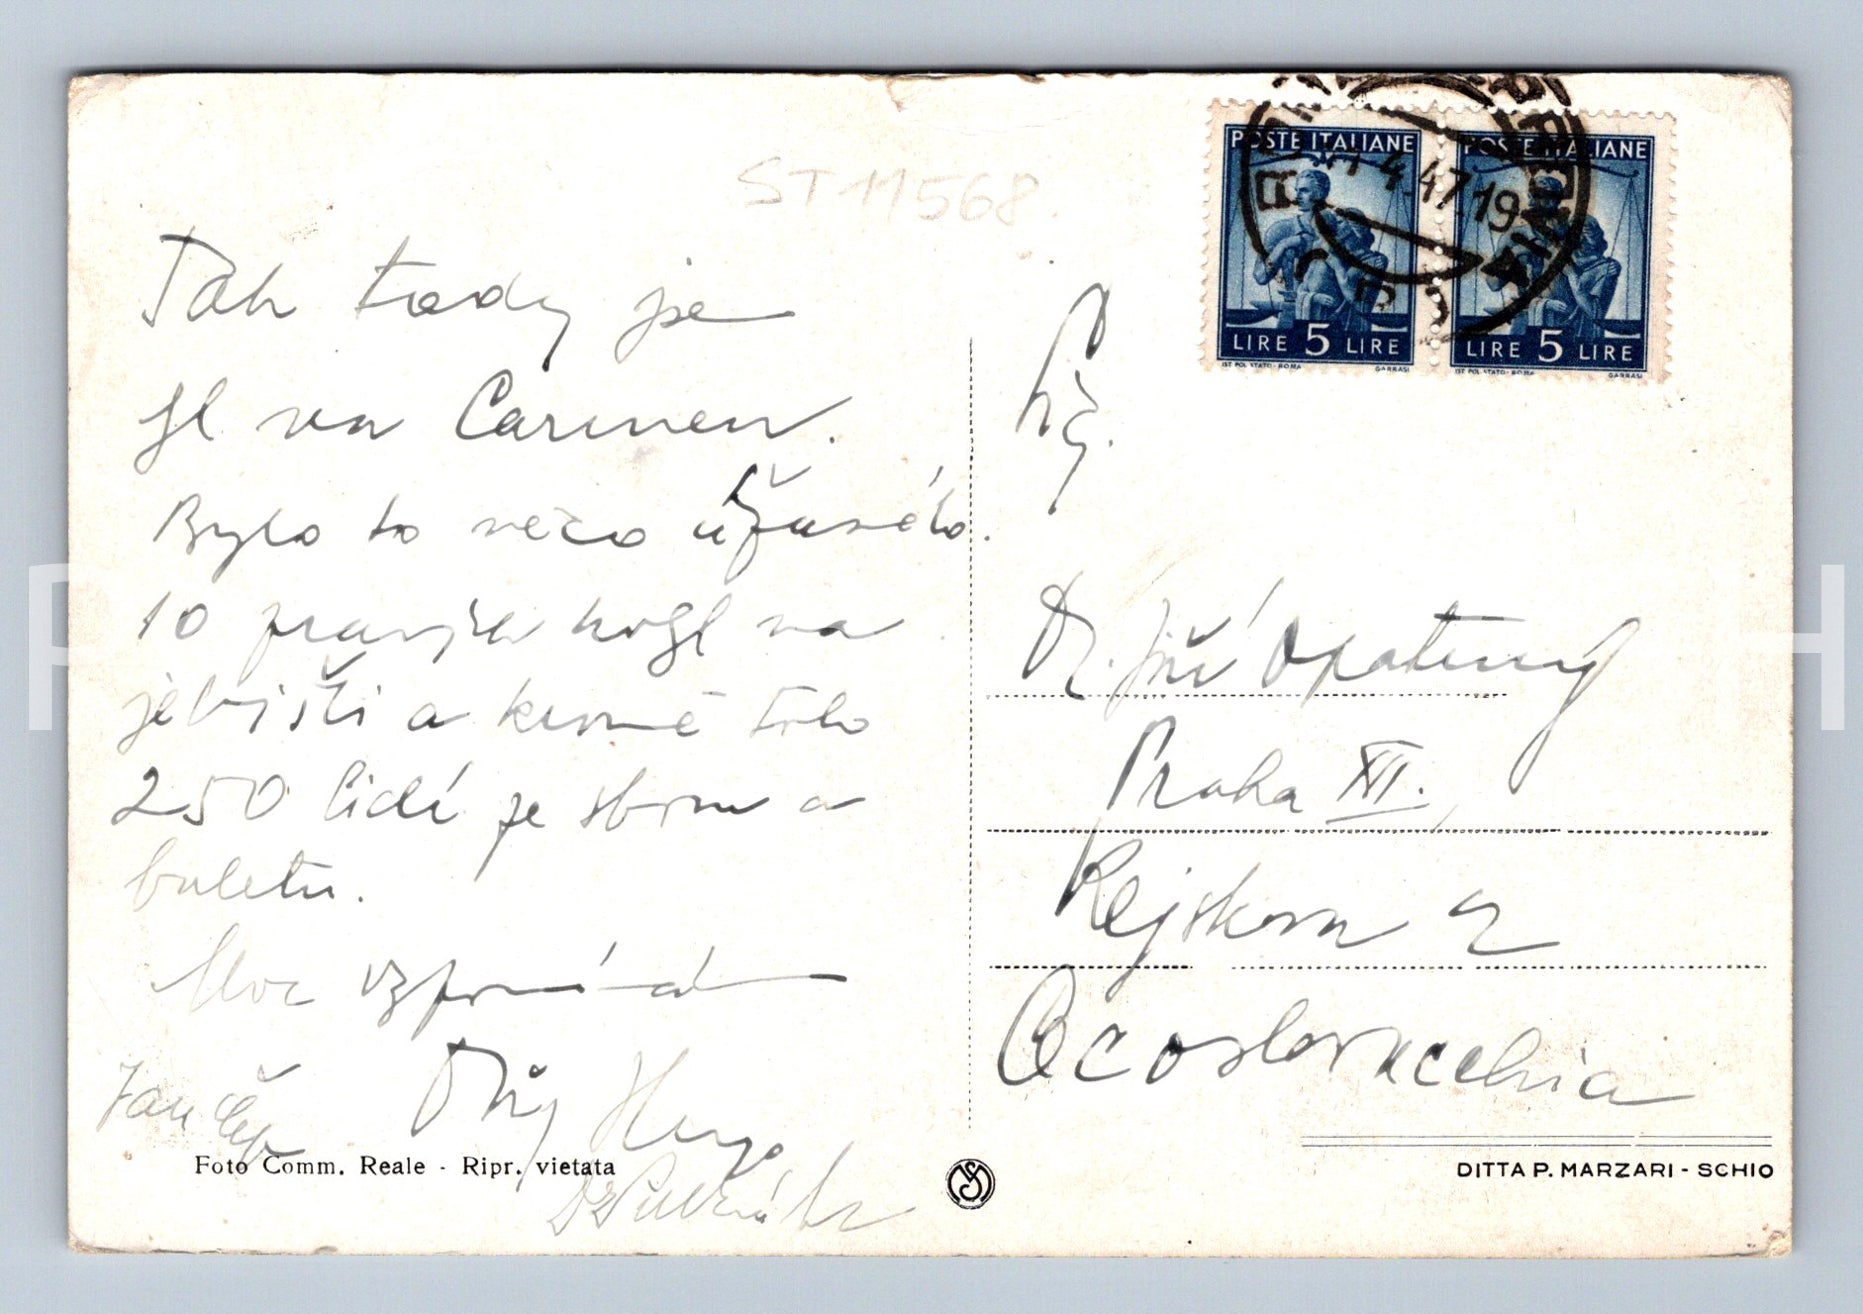 ST 11568.
Tak tady je
jl na Carmen.
Bylo to něco úžasného.
10 pravých na
jevišti a kromě toho
250 lidí je sboru a
baletu.
Moc vzpomíná
Jan Hugo
Foto Comm. Reale - Ripr. vietata
POSTE ITALIANE POSTE ITALIANE
4.47.19
LIRE 5 LIRE LIRE 5 LIRE
IST. POL. STATO - ROMA GARRASI IST. POL. STATO - ROMA GARRASI
Dr. Jiří Opatrný
Praha XII.,
Rejskova 2
Cecoslovacchia
DITTA P. MARZARI - SCHIO